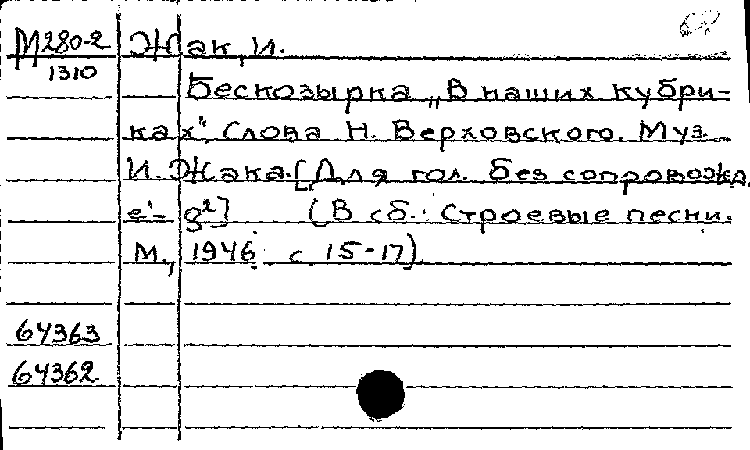 М280-2 Жак, И.
1310
Бескозырка „В наших кубри-
ках". Слова Н. Верховского. Муз.
И. Жака. [Для гол. без сопровожд.
e¹- g²] (В сб.: Строевые песни.
М., 1946 с 15-17)
64363
64362